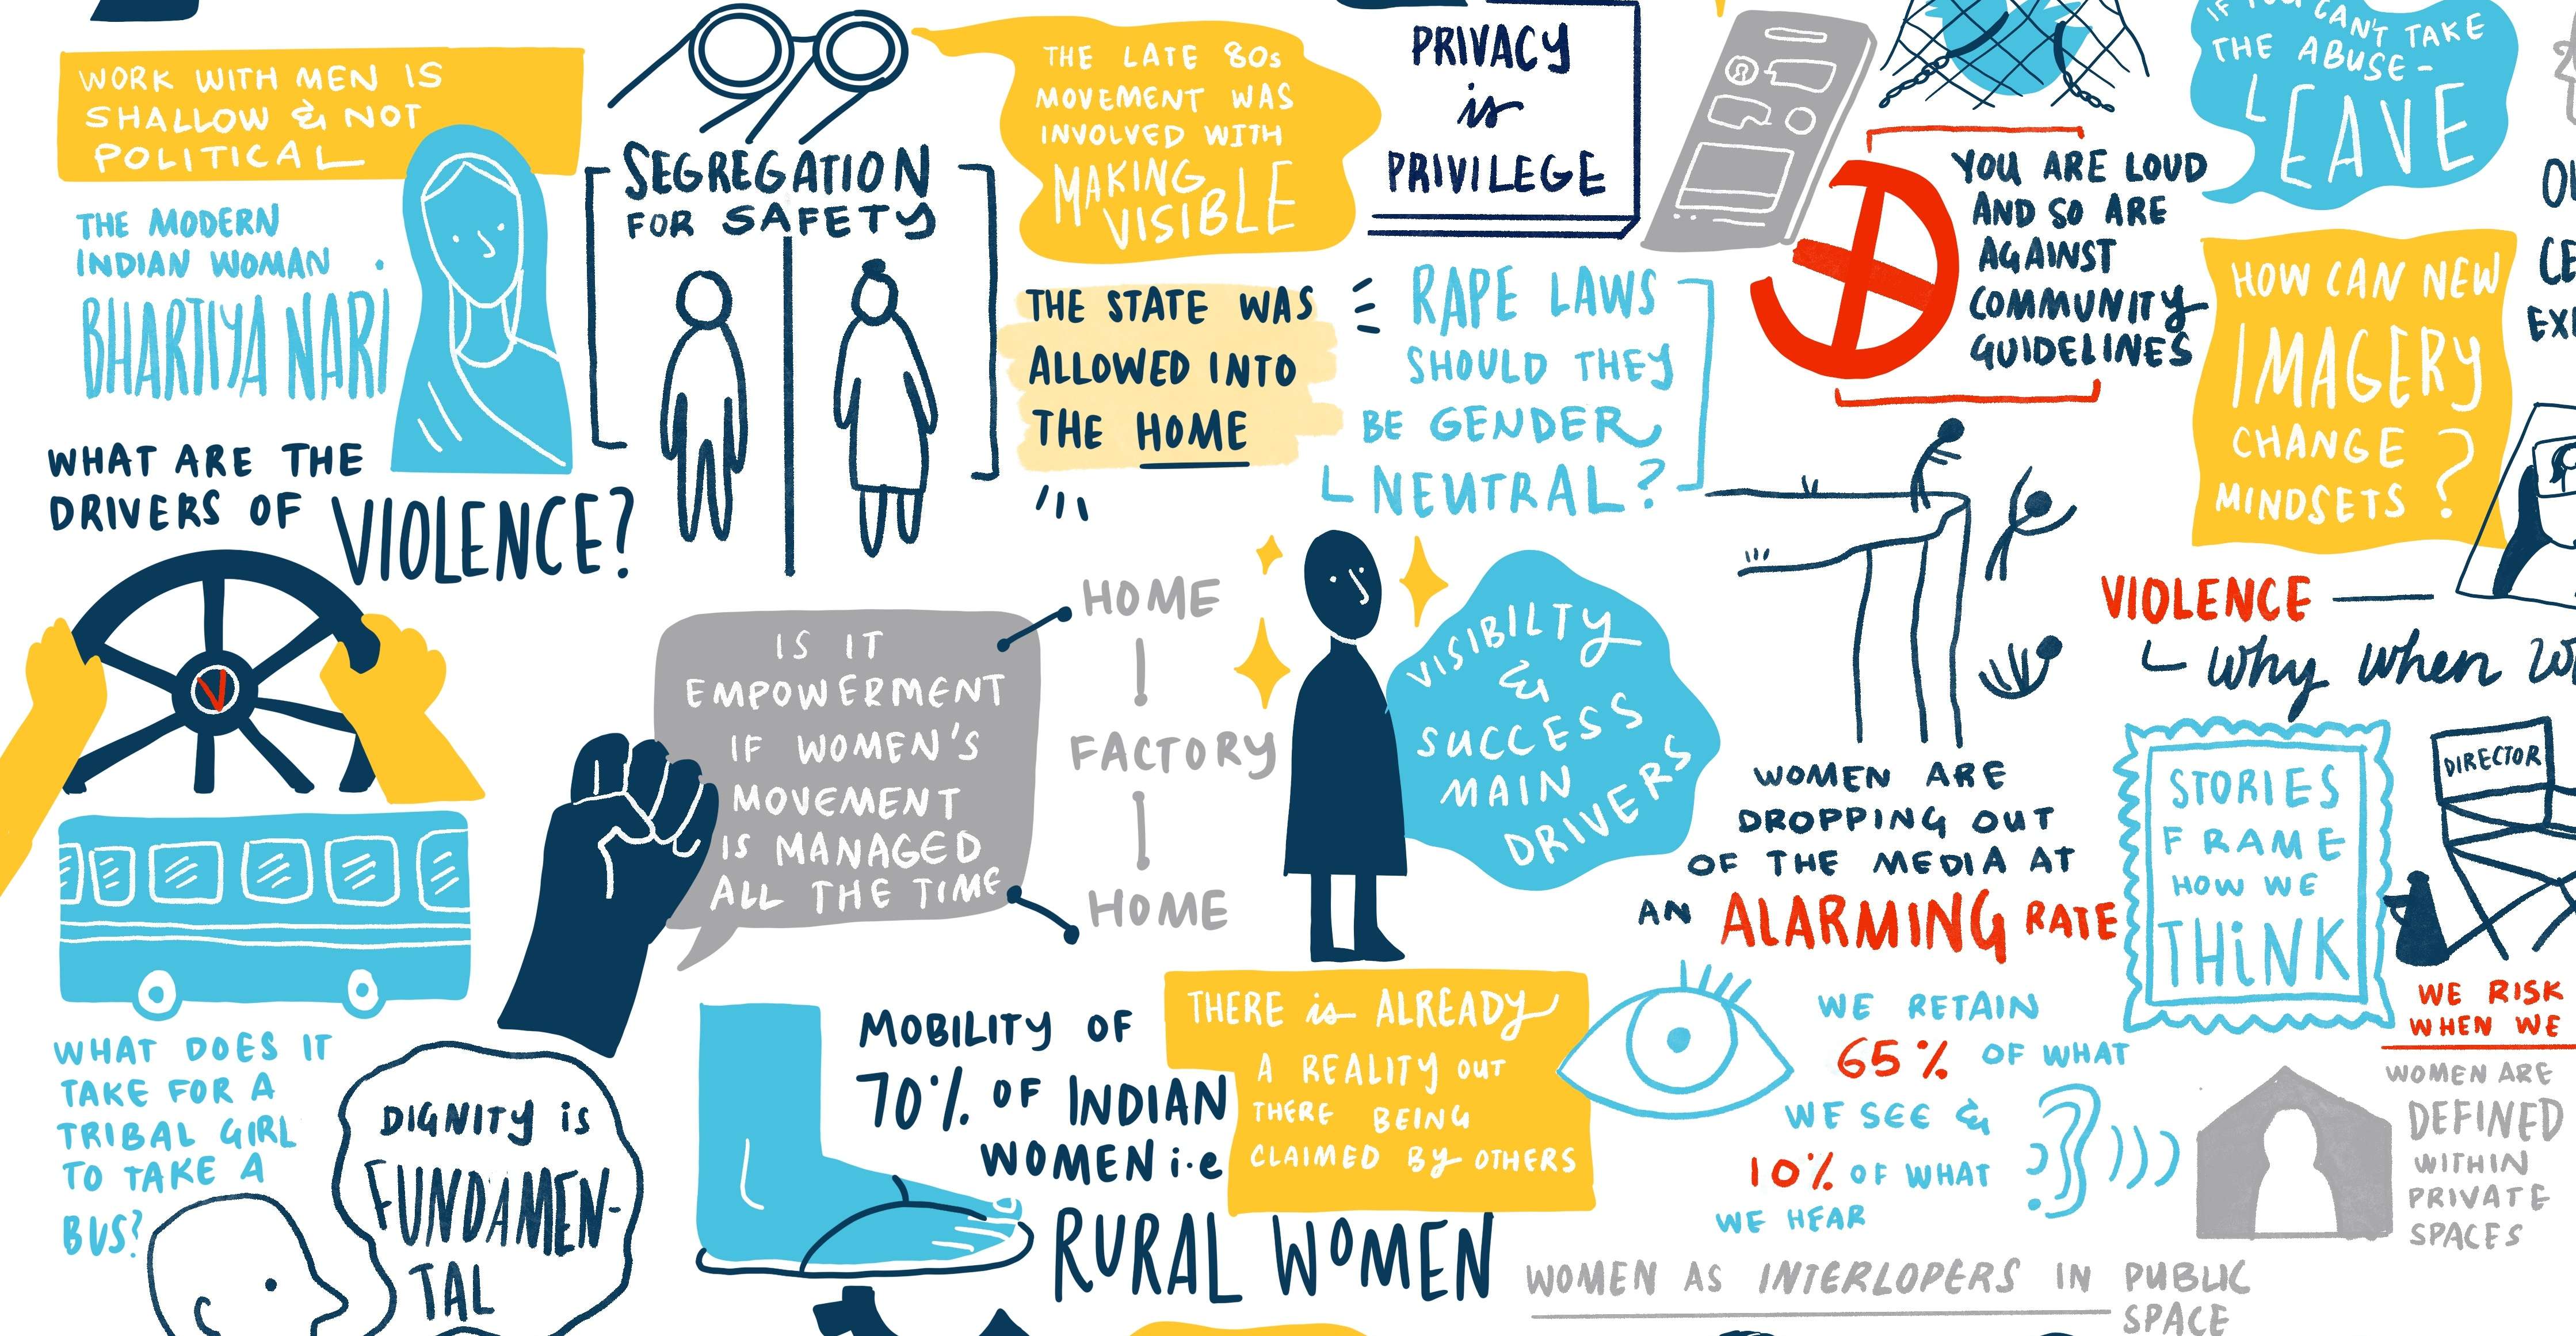 WORK WITH MEN IS
SHALLOW & NOT
POLITICAL
THE MODERN
INDIAN WOMAN
BHARTIYA NARI
WHAT ARE THE
DRIVERS OF VIOLENCE?
V
WHAT DOES IT
TAKE FOR A
TRIBAL GIRL
TO TAKE A
BUS?
DIGNITY is
FUNDAMEN-
TAL
SEGREGATION
FOR SAFETY
THE LATE 80s
MOVEMENT WAS
INVOLVED WITH
MAKING
VISIBLE
THE STATE WAS
ALLOWED INTO
THE HOME
IS IT
EMPOWERMENT
IF WOMEN'S
MOVEMENT
IS MANAGED
ALL THE TIME
HOME
FACTORY
HOME
MOBILITY OF
70% OF INDIAN
WOMEN i.e
RURAL WOMEN
PRIVACY
is
PRIVILEGE
RAPE LAWS
SHOULD THEY
BE GENDER
NEUTRAL?
VISIBILTY
&
SUCCESS
MAIN
DRIVERS
THERE is ALREADY
A REALITY OUT
THERE BEING
CLAIMED BY OTHERS
YOU ARE LOUD
AND SO ARE
AGAINST
COMMUNITY
GUIDELINES
IF YOU CAN'T TAKE
THE ABUSE -
LEAVE
HOW CAN NEW
IMAGERY
CHANGE
MINDSETS?
VIOLENCE
why when
WOMEN ARE
DROPPING OUT
OF THE MEDIA AT
AN ALARMING RATE
STORIES
FRAME
HOW WE
THiNK
DIRECTOR
WE RISK
WHEN WE
WE RETAIN
65% OF WHAT
WE SEE &
10% OF WHAT
WE HEAR
WOMEN ARE
DEFINED
WITHIN
PRIVATE
SPACES
WOMEN AS INTERLOPERS IN PUBLIC
SPACE